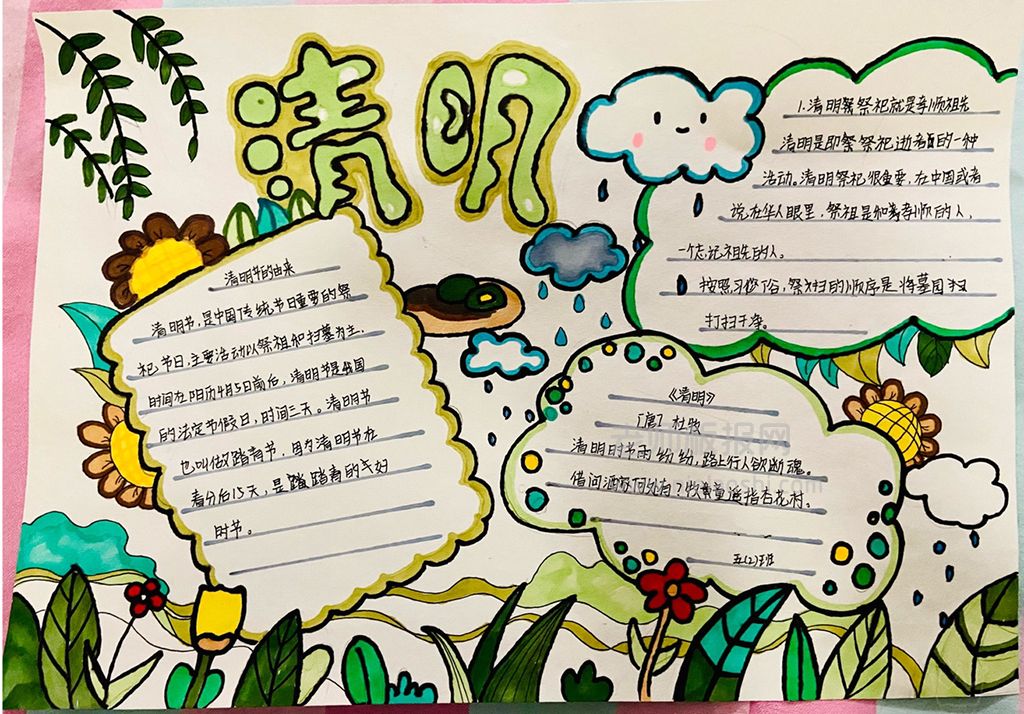 清明
清明节的由来
清明节，是中国传统节日重要的祭
祀节日，主要活动以祭祖和扫墓为主，
时间在阳历4月5日前后，清明节是我国
的法定节假日，时间三天。清明节
也叫做踏青节，因为清明节在
春分后15天，是踏踏青的气好
时节。
1.清明祭祭祀就是孝顺祖先
清明是即祭祭祀逝者的一种
活动。清明祭祀很重要，在中国或者
说在华人眼里，祭祖是和孝顺的人，
一个忘记祖先的人。
按照习俗，祭扫的顺序是将墓园扫
打扫干净。
《清明》
[唐] 杜牧
清明时节雨纷纷，路上行人欲断魂。
借问酒家何处有？牧童遥指杏花村。
五(2)班